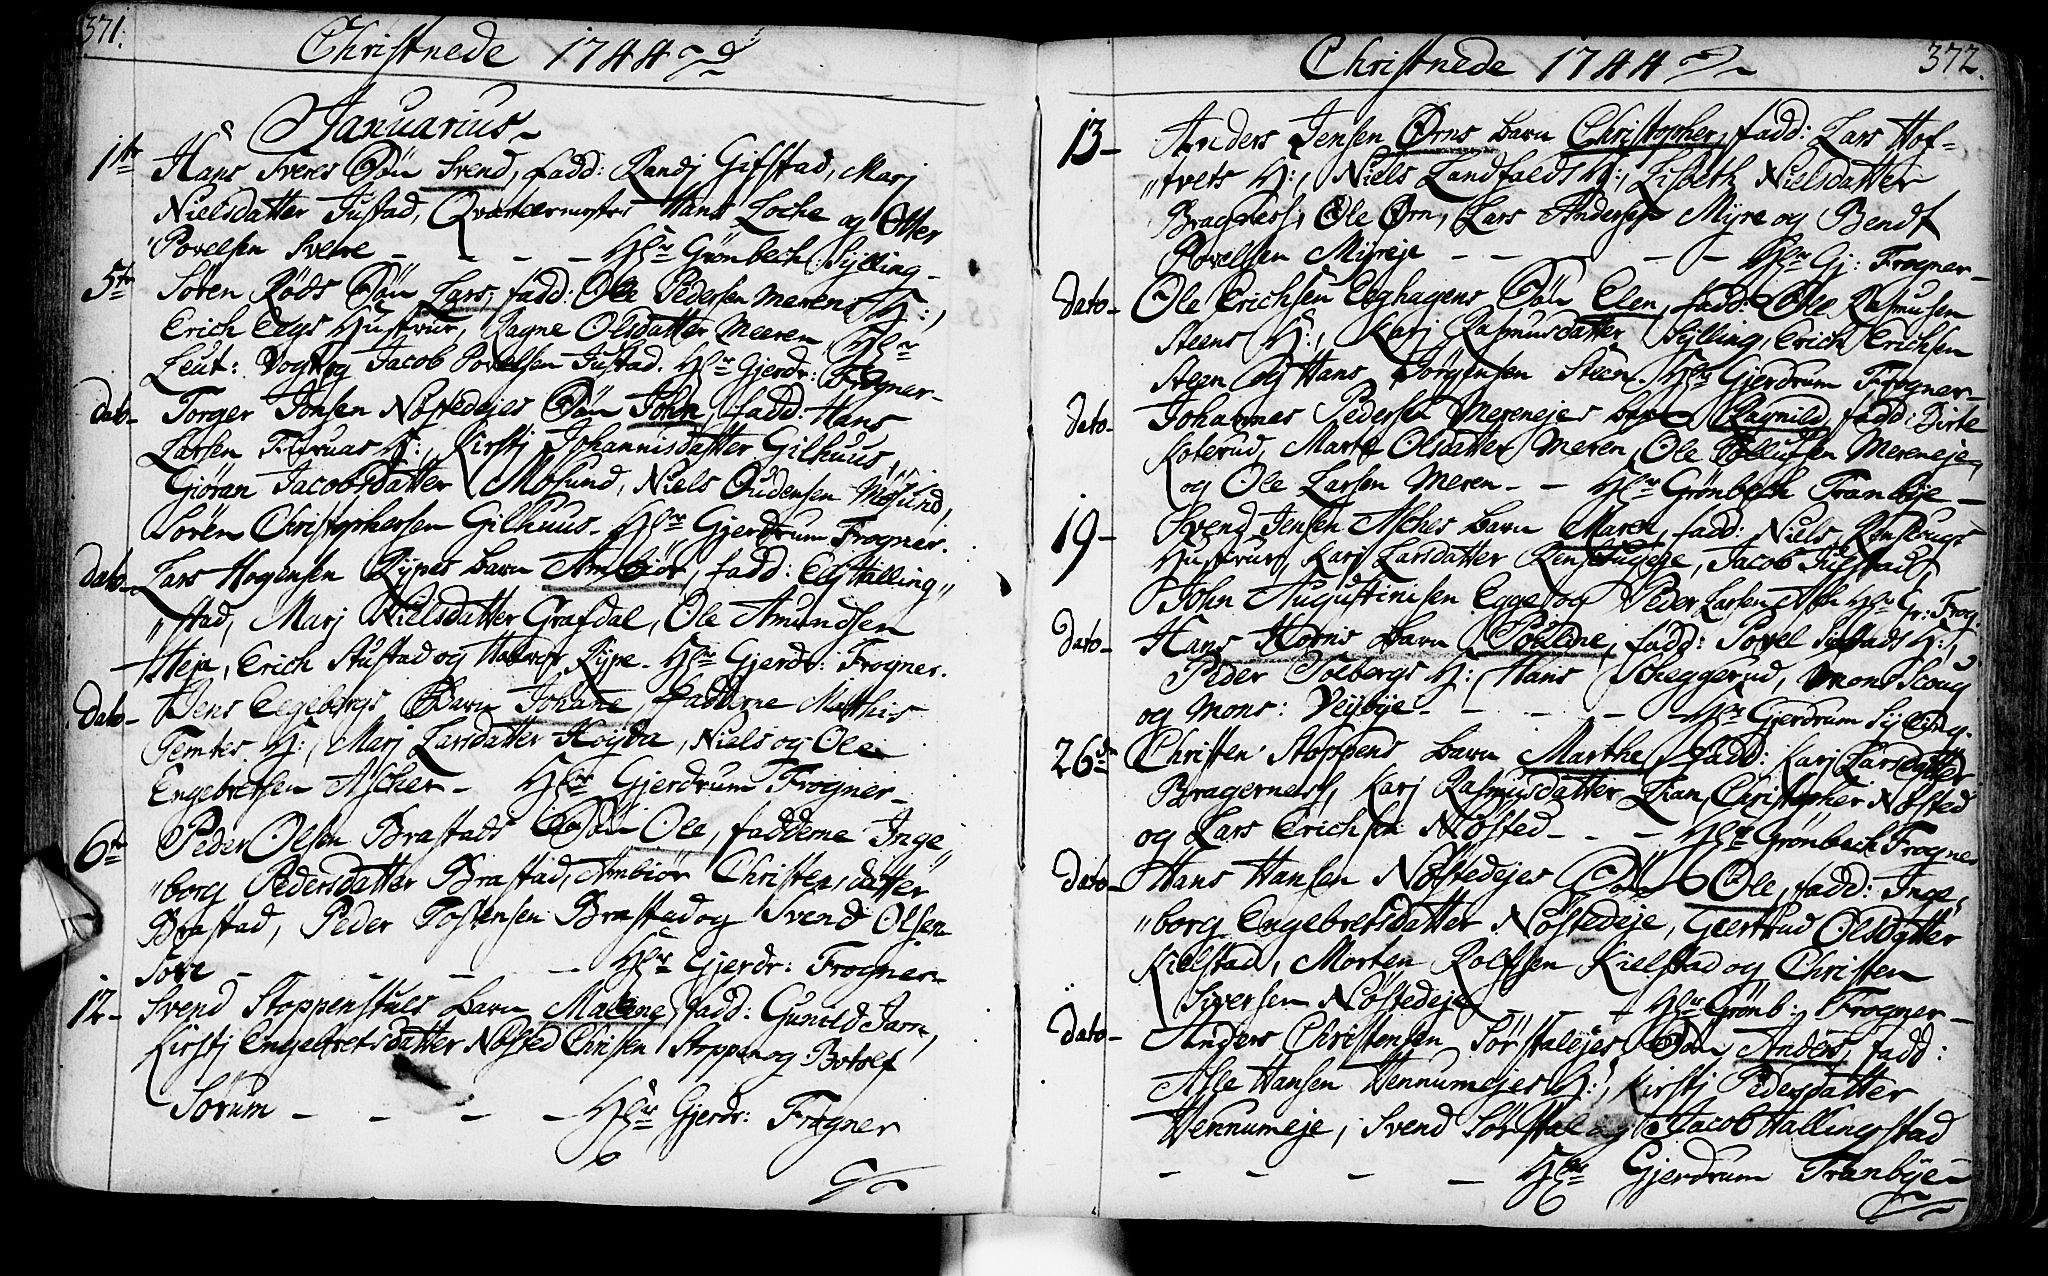 371.
Christnede 1744
Januarius
1ste Hans Sveres Søn Svend, fadd: Randj Gifstad, Marj
Nielsdatter Justad, Qvarteermester Hans Loche og Otter
Povelsen Svere - - - - Hr Grønbech: Sylling-
5te Søren Røds Søn Lars, fadd: Ole Pedersen Merens H:,
Erich Eegs Hustrue, Ragne Olsdatter Meeren, Hr
Leut: Vogt og Jacob Povelsen Justad. Hr Gjerdr: Frogner-
dato- Torger Jonsen Nøstedejes Søn John, fadd: Hans
Larsen Furuas H:, Kirstj Johannisdatter Gilhuus,
Giøran Jacobsdatter Møsund, Niels Oudensen Møsund,
Søren Christophersen Gilhuus- Hr Gjerdrum Frogner.
dato- Lars Hogensen Rypes barn Ambiør, fadd: Eli Halling"
"stad, Marj Nielsdatter Grafdal, Ole Amundsen
Heja, Erich Stustad og Halvor Rype- Hr Gjerdr: Frogner.
dato- Jens Eegebergs Barn Johane, fadderne Matthis
Temtes H:, Marj Larsdatter Høyda, Niels og Ole
Engebretsen Ascher- Hr Gjerdrum Frogner-
6te Peder Olsen Brastads Søn Ole, fadderne Inge"
"borg Pedersdatter Brastad, Ambiør Christensdatter
Brastad, Peder Tostensen Brastad og Svend Olsen
Sore - - - - Hr Gjerdr: Frogner-
12- Svend Stoppenstuls barn Malene, fadd: Gunild Jarn,
Kirstj Engebretsdatter Nøsted Christen Stoppen og Botolf
Sørum - - - - Hr Gjerdr: Frogner
372.
Christnede 1744
13- Anders Jensen Ørns barn Christopher, fadd: Lars Hof=
"tvets H:, Niels Landfalds H:, Lisbeth Nielsdatter
Bragness, Ole Ørn, Lars Andersen Myre og Bendt
Povelsen Myreje - - - - - Hr Gj: Frogner-
dato- Ole Erichsen Eeghagens Søn Elen, fadd: Ole Rasmusen
Steens H:, Karj Rasmusdatter Sylling, Erich Erichsen
Steen og Hans Jørgensen Steen. Hr Gjerdrum Frogner-
dato- Johannes Pedersen Merenejes barn Ragnild, fadd: Birte
Koterud, Marte Olsdatter Meren, Ole Pollufsen Mereneje,
og Ole Larsen Meren- - Hr Grønbech Tranbye-
19- Svend Jensen Aschers barn Maren, fadd: Niels Rinsougs
Hustrue, Karj Larsdatter Rinsougeje, Jacob Justad,
John Augustinisen Egge og Peder Larsen Ask Hr Gr: Frog.
dato- Hans Horns barn Pouline, fadd: Povel Justads H:,
Peder Solbergs H: Hans Scheggerud, Mons Scoug
og Mons: Veybye - - - - - Hr Gjerdrum Sylling.
26de Christen Stoppens barn Marthe, fadd: Karj Larsdatter
Bragerness, Karj Rasmusdatter Lian, Christopher Nøsted
og Lars Erichsen Nøsted- - - Hr Grønbech Frogner
dato- Hans Hansen Nøstedejes Søn Ole, fadd: Inge"
"borg Engebretsdatter Nøstedeje, Geertrud Olsdatter
Kielstad, Morten Rolfsen Kielstad og Christen
Siversen Nøstedeje - - Hr Grønb: Frogner-
dato- Anders Christensen Sørstalejes Søn Anders, fadd:
Asle Hansen Hennumejes H:, Kirstj Pedersdatter
Hennumeje, Svend Sørstal og Jacob Hallingstad
- - - - Hr Gjerdrum Tranbye-